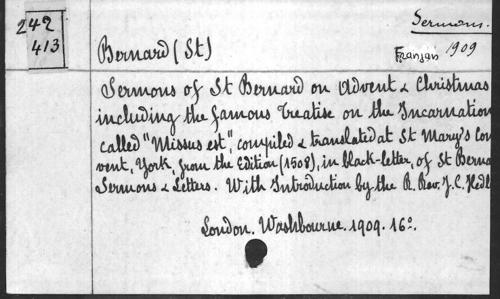 242
413
Sermons.
Bernard (St)
Fransan 1909
Sermons of St Bernard on Advent & Christmas
including the famous Treatise on the Incarnation
called "Missus est", compiled & translated at St Mary's Con
vent, York, from the Edition (1508), in black-letter, of St Berna
Sermons & Letters. With Introduction by the R. Rev. J. C. Hedl
London. Washbourne. 1909. 16º.